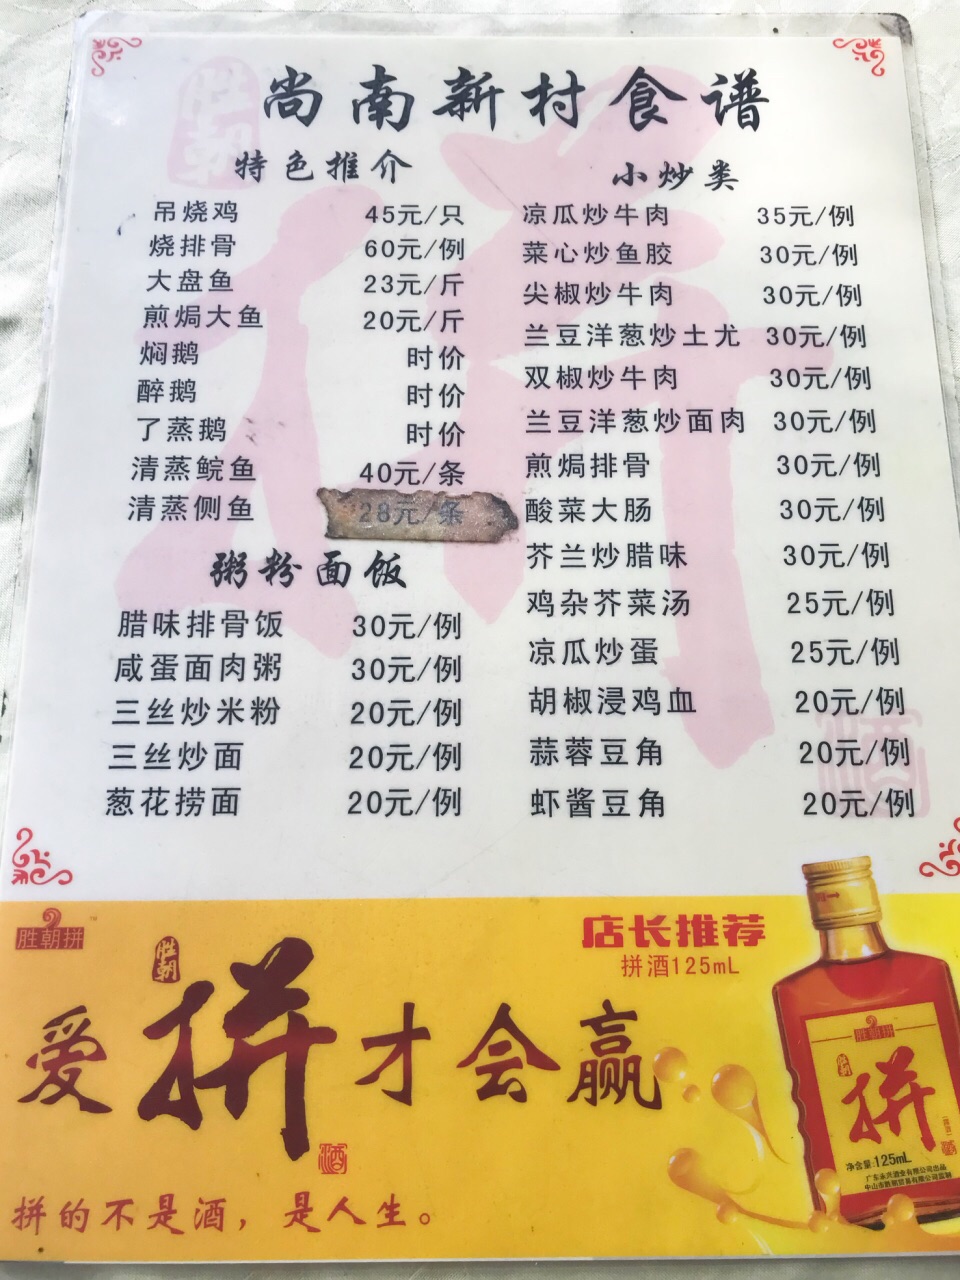 尚南新村食谱
特色推介
吊烧鸡 45元/只
烧排骨 60元/例
大盘鱼 23元/斤
煎焗大鱼 20元/斤
焖鹅 时价
醉鹅 时价
了蒸鹅 时价
清蒸鲩鱼 40元/条
清蒸侧鱼 28元/条
粥粉面饭
腊味排骨饭 30元/例
咸蛋面肉粥 30元/例
三丝炒米粉 20元/例
三丝炒面 20元/例
葱花捞面 20元/例
小炒类
凉瓜炒牛肉 35元/例
菜心炒鱼胶 30元/例
尖椒炒牛肉 30元/例
兰豆洋葱炒土尤 30元/例
双椒炒牛肉 30元/例
兰豆洋葱炒面肉 30元/例
煎焗排骨 30元/例
酸菜大肠 30元/例
芥兰炒腊味 30元/例
鸡杂芥菜汤 25元/例
凉瓜炒蛋 25元/例
胡椒浸鸡血 20元/例
蒜蓉豆角 20元/例
虾酱豆角 20元/例
胜朝拼™
店长推荐
拼酒125mL
胜朝
爱拼才会赢
酒
拼的不是酒，是人生。
胜朝拼
胜朝
拼
净含量:125mL
广东永兴酒业有限公司出品
中山市胜朝贸易有限公司监制